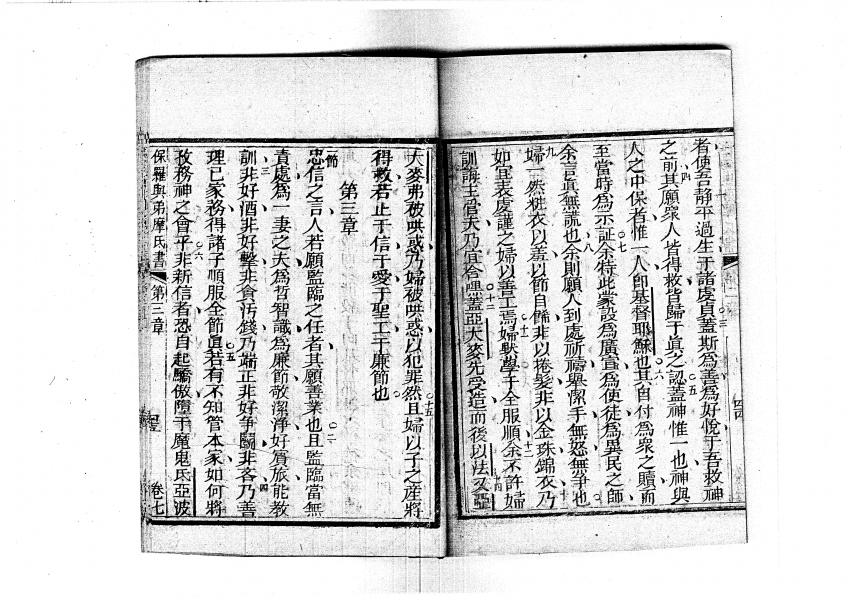 者使吾靜平過生于諸虔貞蓋斯爲善爲好悅于吾救神
之前其願衆人皆得救皆歸于眞之認蓋神惟一也神與
人之中保者惟一人卽基督耶穌也其自付爲衆之贖而
至當時爲示証余特此蒙設爲廣宣爲使徒爲異氏之師
余言眞無謊也余則願人到處祈禱舉潔手無怒無爭也
婦一然粧衣以羞以節自餙非以捲髮非以金珠錦衣乃
如宜表虔謹之婦以善工焉婦默學于全服順余不許婦
訓誨主管夫乃宜含嘿蓋亞大麥先受造而後以法又亞
大麥弗被哄惑乃婦被哄惑以犯罪然且婦以子之產將
得救若止于信于愛于聖工于廉節也
第三章
忠信之言人若願監臨之任者其願善業也且監臨當無
責處爲一妻之夫爲哲智識爲廉節敬潔淨好賓旅能教
訓非好酒非好擊非貪汚錢乃端正非好爭鬪非吝乃善
理已家務得諸子順服全節眞若有不知管本家如何將
孜務神之會乎非新信者恐自起驕傲墮于魔鬼氏亞波
保羅與弟摩氏書 第三章 卷七